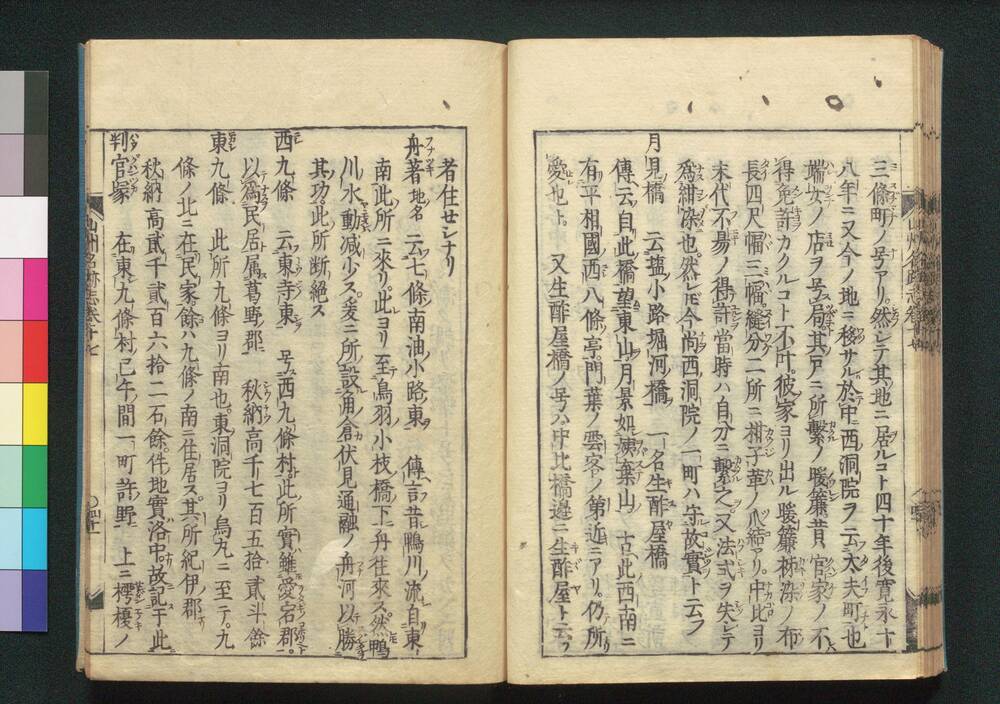 三條町ノ号アリ。然シテ其地ニ居ルコト四十年後寛永十
八年ニ又今ノ地ニ移サル於テ中西洞院ヲ云太夫町也
端女ノ店ヲ号局其戸ニ所繫ノ暖簾昔官家ノ不
得免許カクルコト不叶。彼家ヨリ出ル暖簾柹染ノ布
長四尺幅三幅。縫分二所ニ柑子革ノ爪縮アリ。中比ヨリ
末代不易ノ得許當時ハ自分ニ繫之又法式ヲ失シテ
為紺染也。然レ𪜈今尚西洞院ノ一町ハ守故實ト云フ
月見橋 云塩小路堀河橋 一名生酢屋橋
傳云自此橋望東山月景如姨棄山古此西南ニ
有平相國西八條亭。門葉ノ雲客ノ第近ニアリ。仍所
愛也ト。 又生酢屋橋ノ号ハ中比橋邊ニ生酢屋ト云フ
者住セシナリ
舟著 地名 云七條南油小路東 傳言昔鴨川流自東
南此所ニ來リ。此ヨリ至鳥羽小枝橋下舟往來ス。然鴨
川水動減少ス。爰ニ所設角倉伏見通融ノ舟河以勝
其功。此所断絶ス
西九條 云東寺東 号西九條村。此所實雖愛宕郡。
以為民居属葛野郡 秋納高千七百五拾貳斗餘
東九條 此所九條ヨリ南也。東洞院ヨリ烏丸ニ至テ。九
條ノ北ニ在民家餘ハ九條ノ南ニ住居ス。其所紀伊郡
秋納高貳千貳百六拾二石餘。件地實洛中。故記于此
判官塚 在東九條村巳午間一町許野 上ニ樗榎ノ
山州名跡志巻十七